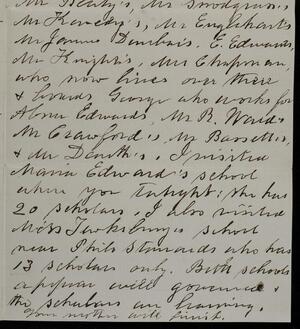 Mr Beaty's, Mr Snodgrass,
Mr Kennedy's, Mr Englehart's
Mr James E. Edwards,
Mr Knight's, Mrs Chapman,
who now lives over there
& boards George who works for
Abner Edwards, Mr R. Ward's
Mr Crawford's, Mr Bassett's,
& Mr I visited
Maria Edward's school
where you taught: she has
20 scholars, I also visited
Miss school
near Phil's who has
13 scholars only. Both schools
appear well governed &
the scholars are learning.
Your mother will finish.